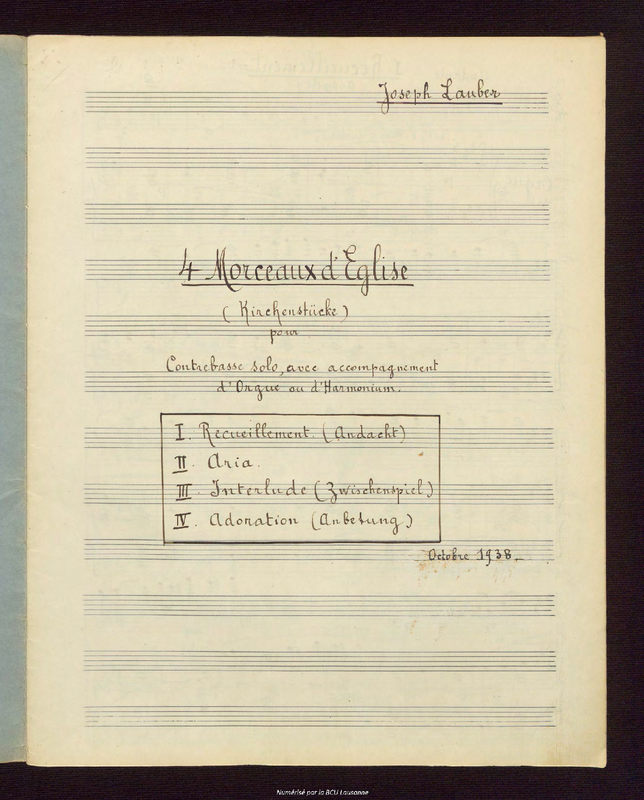 Joseph Lauber
4 Morceaux d'Eglise
(Kirchenstücke)
pour
Contrebasse solo, avec accompagnement
d'Orgue ou d'Harmonium.
I. Recueillement. (Andacht)
II. Aria.
III. Interlude (Zwischenspiel)
IV. Adoration (Anbetung)
Octobre 1938.
Numérisé par la BCU Lausanne